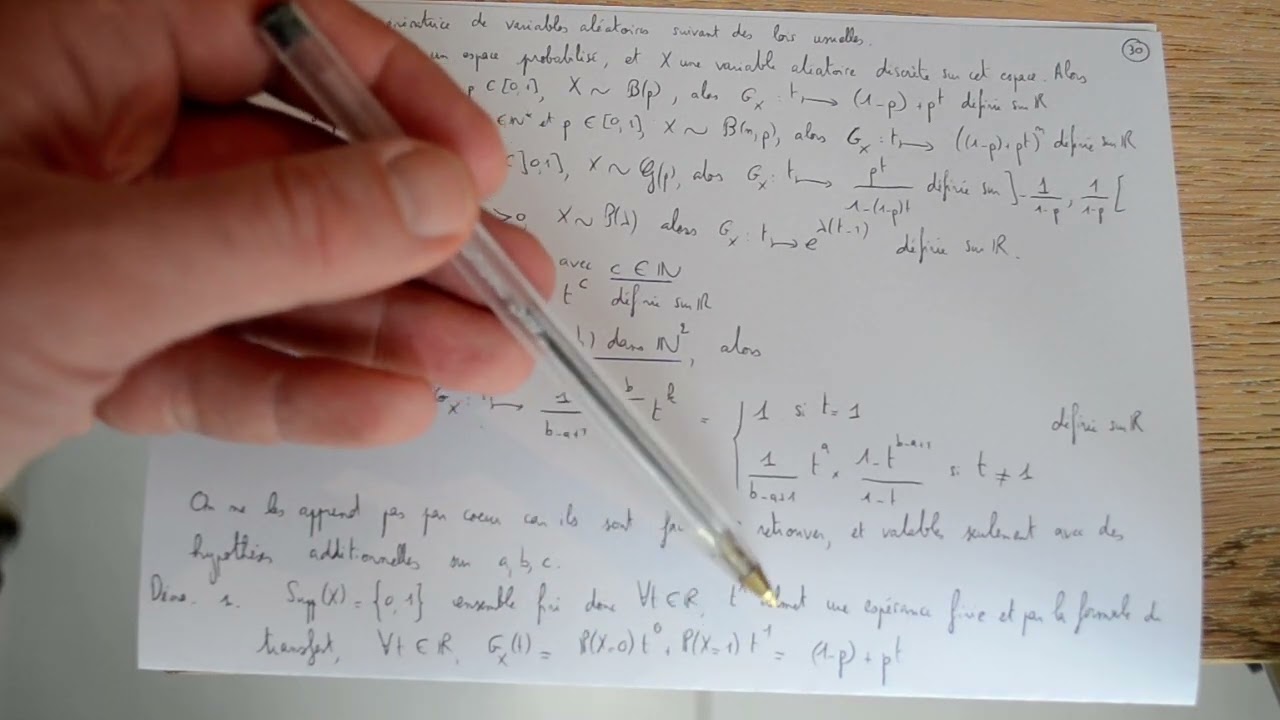 de variables aléatoires suivant des lois usuelles. 30
un espace probabilisé, et X une variable aléatoire discrète sur cet espace. Alors
p ∈ [0,1], X ~ B(p), alors G_X : t ↦ (1-p) + pt définie sur ℝ
∈ ℕ* et p ∈ [0,1] X ~ B(n,p), alors G_X : t ↦ ((1-p) + pt)^n définie sur ℝ
∈ ]0,1], X ~ G(p), alors G_X : t ↦ pt/(1-(1-p)t) définie sur ]-1/(1-p), 1/(1-p)[
>0, X ~ P(λ) alors G_X : t ↦ e^{λ(t-1)} définie sur ℝ.
avec c ∈ ℕ
t^c définie sur ℝ
b) dans ℕ², alors
G_X : t ↦ 1/(b-a+1) b t^k = { 1 si t = 1 définie sur ℝ
1/(b-a+1) t^a × (1-t^{b-a+1})/(1-t) si t ≠ 1
On ne les apprend pas par coeur car ils sont retrouver, et valables seulement avec des
hypothèses additionnelles sur a, b, c.
Démo. 1. Supp(X) = {0,1} ensemble fini donc ∀t ∈ ℝ, admet une espérance finie et par la formule du
transfert, ∀t ∈ ℝ, G_X(t) = P(X=0) t^0 + P(X=1) t^1 = (1-p) + pt